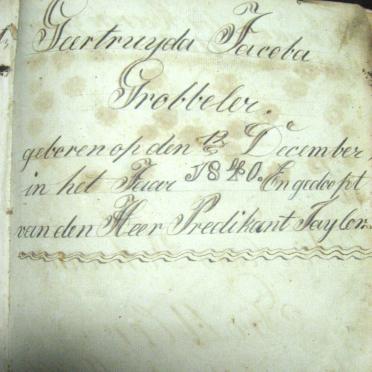 Gertruyda Jacoba
Grobbeler.
geboren op den 12 December,
in het Jaar 1840. En gedoopt
van den Heer Predikant Taylor.